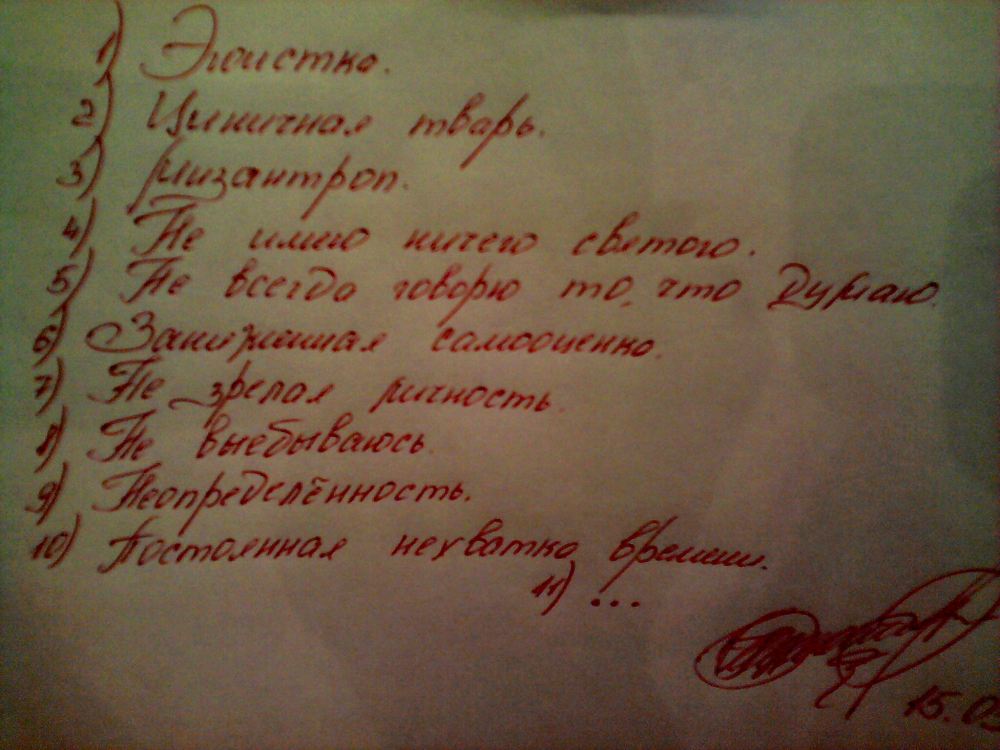 1) Эгоистка.
2) Циничная тварь.
3) Мизантроп.
4) Не имею ничего святого.
5) Не всегда говорю то, что думаю.
6) Заниженная самооценка.
7) Не зрелая личность.
8) Не выебываюсь.
9) Неопределённость.
10) Постоянная нехватка времени.
11) ...
15.03